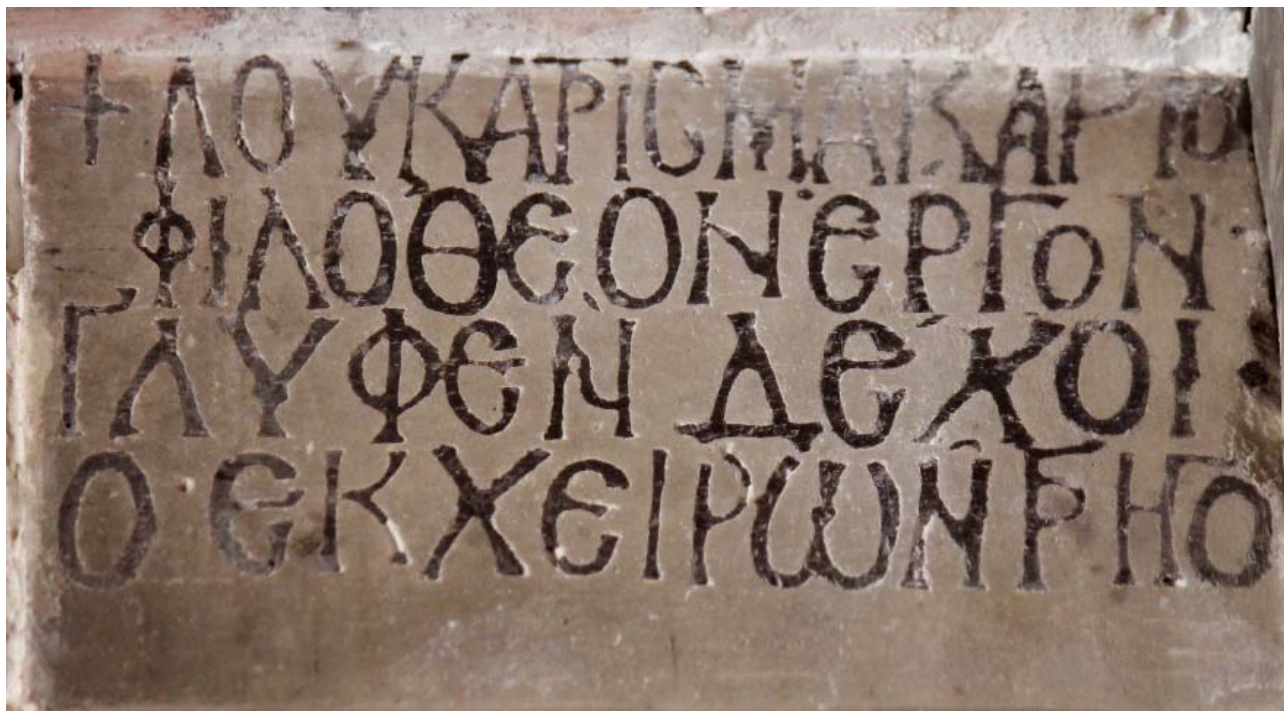 + ΛΟΥΚΑΡΙϹ ΜΑΚΑΡΙΟ
ΦΙΛΟΘΕΟΝ ΕΡΓΟΝ
ΓΛΥΦΕΝ ΔΕ ΚΟΙ
Ο ΕΚ ΧΕΙΡΩΝ